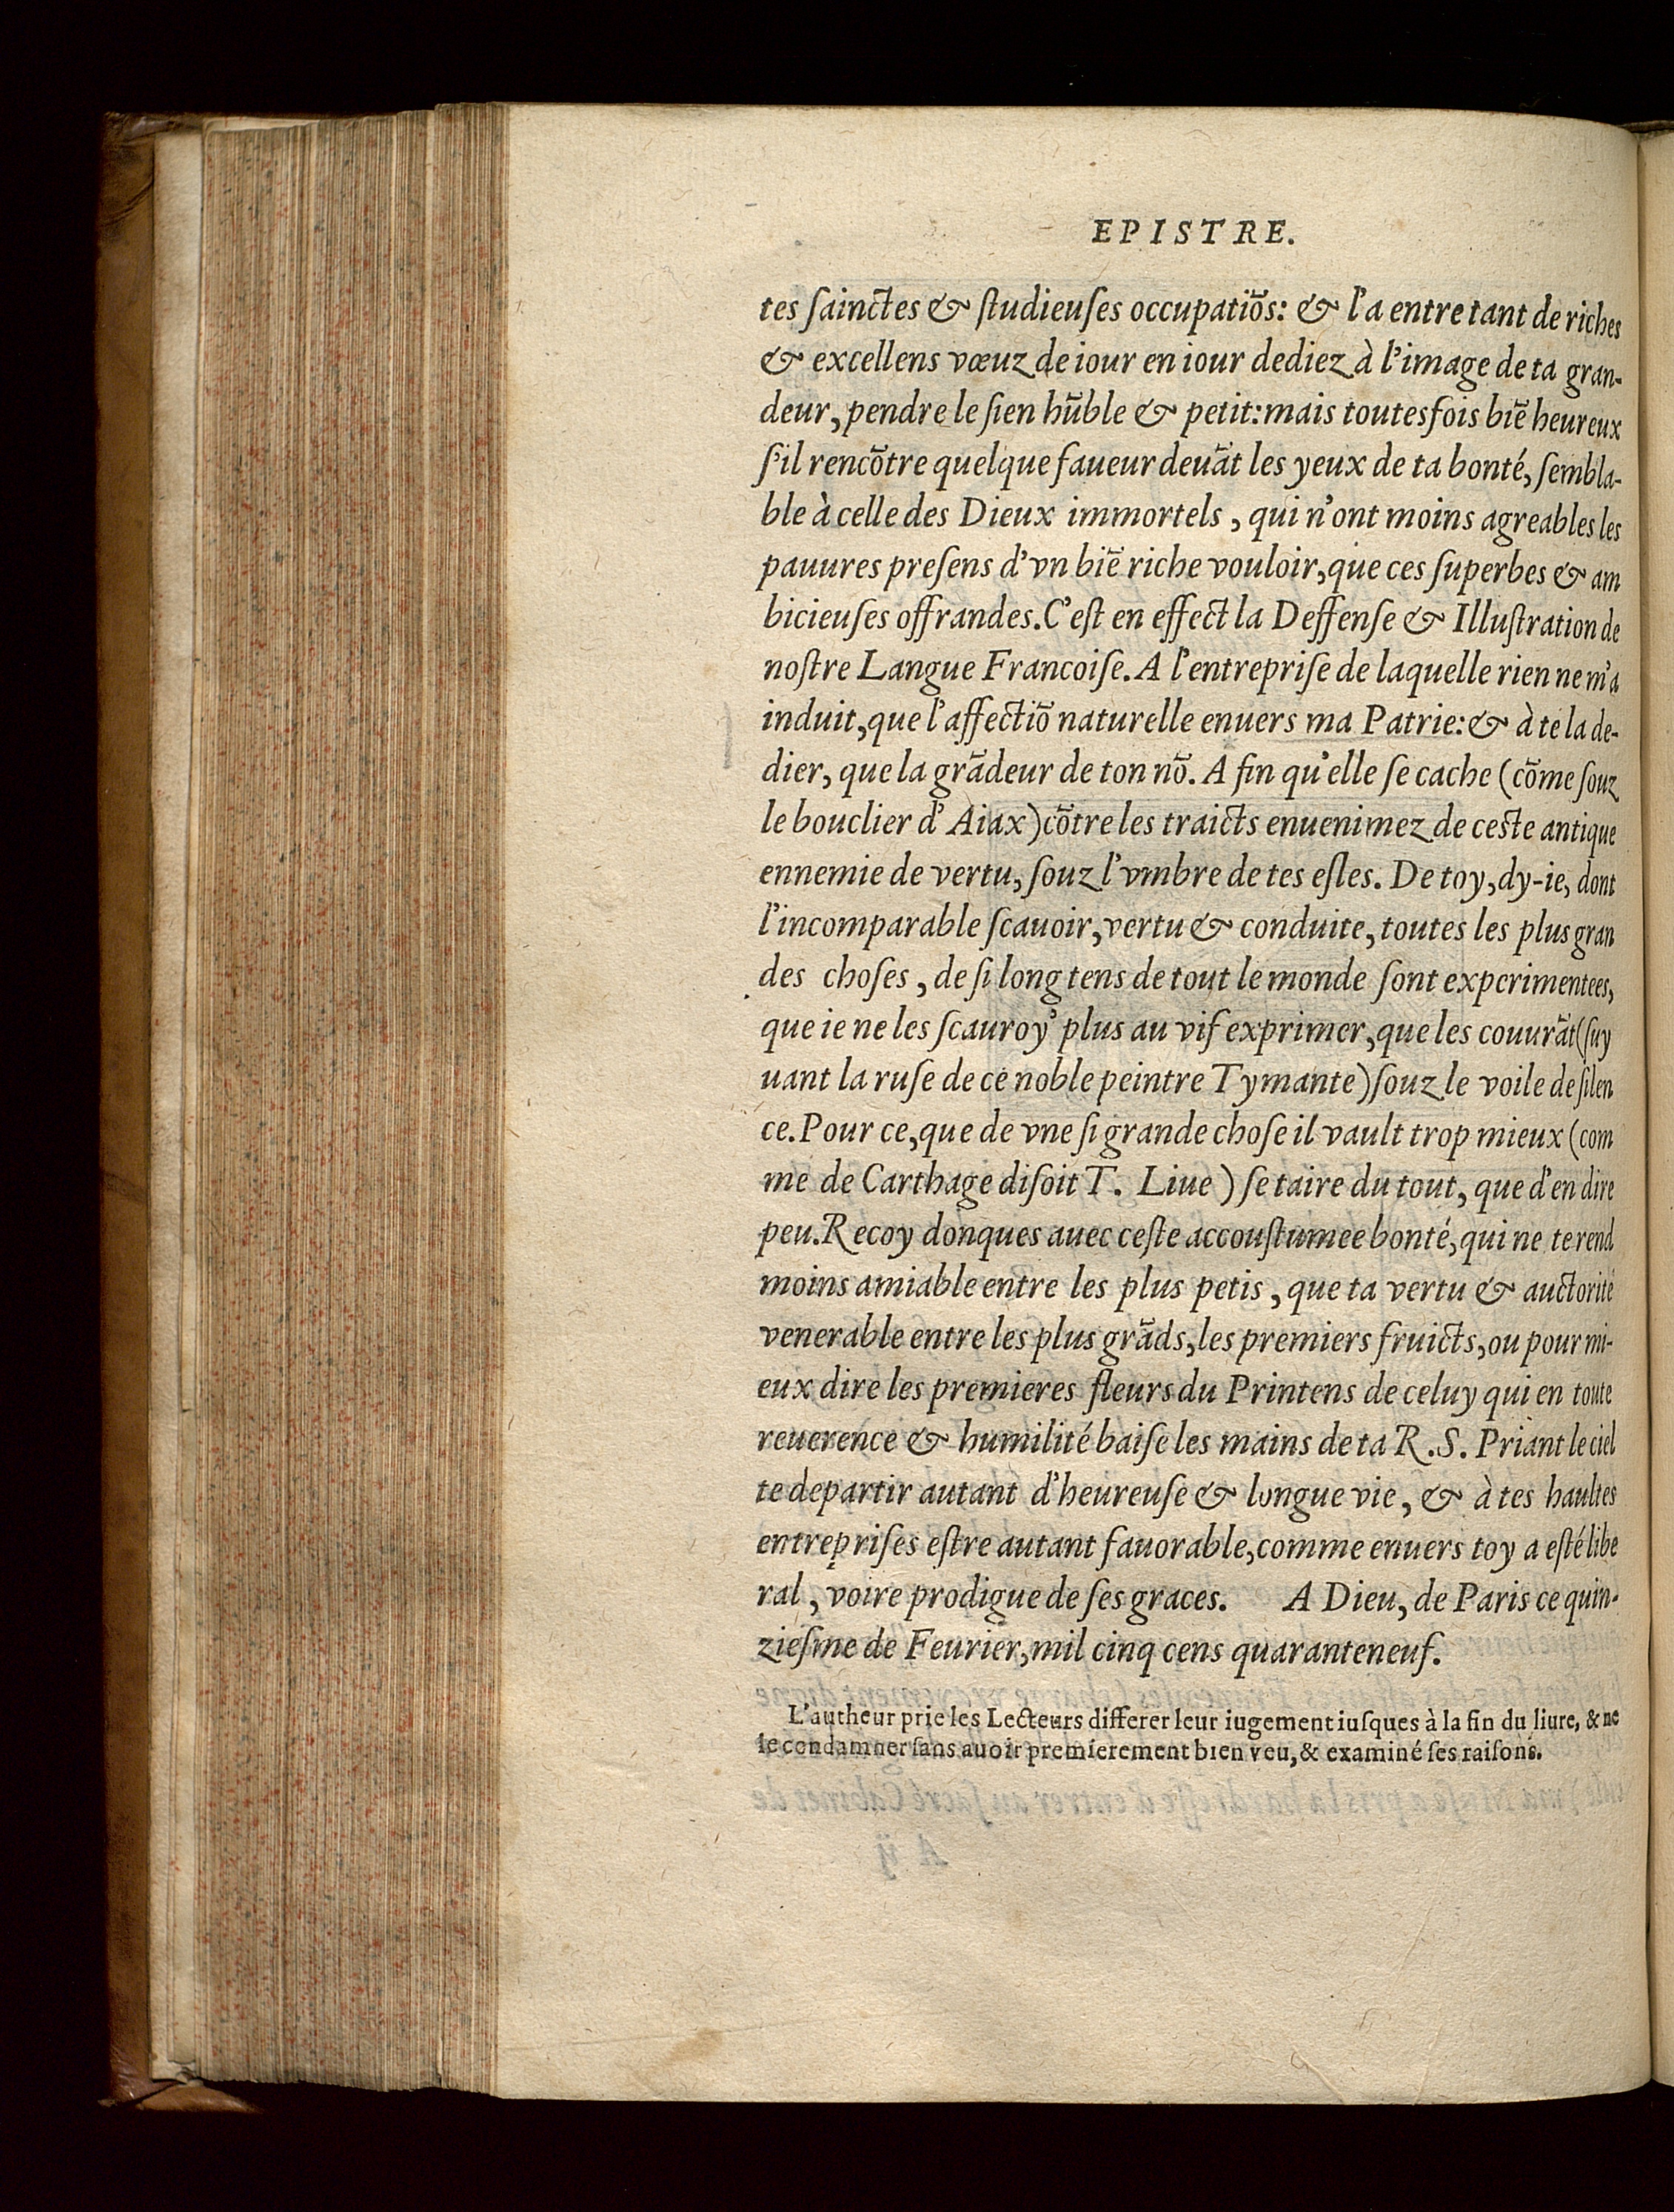 EPISTRE.
tes ſainctes & ſtudieuſes occupatiõs: & l'a entre tant de riches
& excellens vœuz de iour en iour dediez à l'image de ta gran-
deur, pendre le ſien hũble & petit: mais toutesfois biẽ heureux
ſ'il rencõtre quelque faueur deuãt les yeux de ta bonté, ſembla-
ble à celle des Dieux immortels, qui n'ont moins agreables les
pauures preſens d'vn biẽ riche vouloir, que ces ſuperbes & am
bicieuſes offrandes. C'eſt en effect la Deffenſe & Illuſtration de
noſtre Langue Francoiſe. A l'entrepriſe de laquelle rien ne m'a
induit, que l'affectiõ naturelle enuers ma Patrie: & à te la de-
dier, que la grãdeur de ton nõ. A fin qu'elle ſe cache (cõme ſouz
le bouclier d'Aiax) cõtre les traicts enuenimez de ceſte antique
ennemie de vertu, ſouz l'vmbre de tes eſles. De toy, dy-ie, dont
l'incomparable ſcauoir, vertu & conduite, toutes les plus gran
des choſes, de ſi long tens de tout le monde ſont experimentees,
que ie ne les ſcauroy' plus au vif exprimer, que les couurãt (ſuy
uant la ruſe de ce noble peintre Tymante) ſouz le voile de ſilen
ce. Pour ce, que de vne ſi grande choſe il vault trop mieux (com
me de Carthage diſoit T. Liue) ſe taire du tout, que d'en dire
peu. Recoy donques auec ceſte accouſtumee bonté, qui ne te rend
moins amiable entre les plus petis, que ta vertu & auctorité
venerable entre les plus grãds, les premiers fruicts, ou pour mi-
eux dire les premieres fleurs du Printens de celuy qui en toute
reuerence & humilité baiſe les mains de ta R.S. Priant le ciel
te departir autant d'heureuſe & longue vie, & à tes haultes
entrepriſes eſtre autant fauorable, comme enuers toy a eſté libe
ral, voire prodigue de ſes graces. A Dieu, de Paris ce quin-
zieſme de Feurier, mil cinq cens quaranteneuf.
L'autheur prie les Lecteurs differer leur iugement iuſques à la fin du liure, & ne
le condamner ſans auoir premierement bien veu, & examiné ſes raiſons.